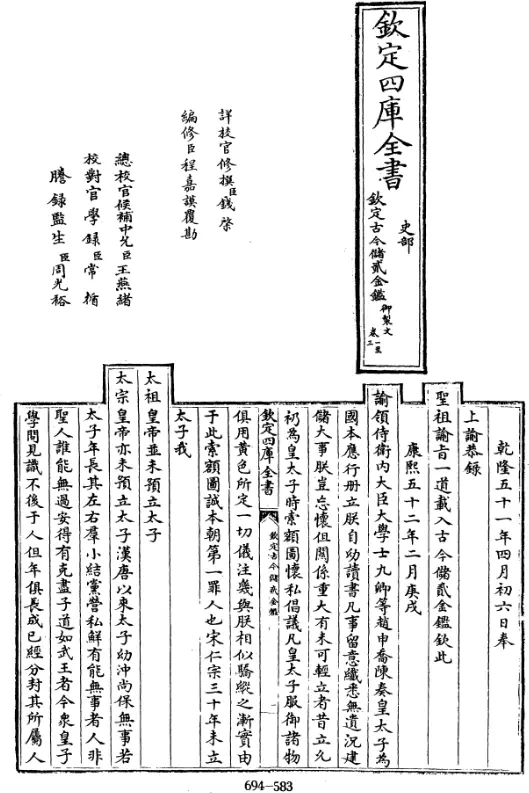 欽定四庫全書
史部
欽定古今儲貳金鑑
御製文
卷一至三
詳校官修撰臣錢棨
編修臣程嘉謨覆勘
總校官候補中允臣王燕緒
校對官學錄臣常循
謄錄監生臣周光裕
乾隆五十一年四月初六日奉
上諭恭録
聖祖諭旨一道載入古今儲貳金鑑欽此
康熙五十二年二月庚戌
諭領侍衛內大臣大學士九卿等趙申喬陳奏皇太子為
國本應行冊立朕自幼讀書凡事留意纖悉無遺況建
儲大事朕豈忘懷但關係重大有未可輕立者昔立允
礽為皇太子時索額圖懷私倡議凡皇太子服御諸物
欽定四庫全書
欽定古今儲貳金鑑
俱用黃色所定一切儀注幾與朕相似驕縱之漸實由
于此索額圖誠本朝第一罪人也宋仁宗三十年未立
太子我
太祖皇帝並未預立太子
太宗皇帝亦未預立太子漢唐以來太子幼沖尚保無事若
太子年長其左右羣小結黨營私鮮有能無事者人非
聖人誰能無過安得有克盡子道如武王者今衆皇子
學問見識不後于人但年俱長成已經分封其所屬人
694—583